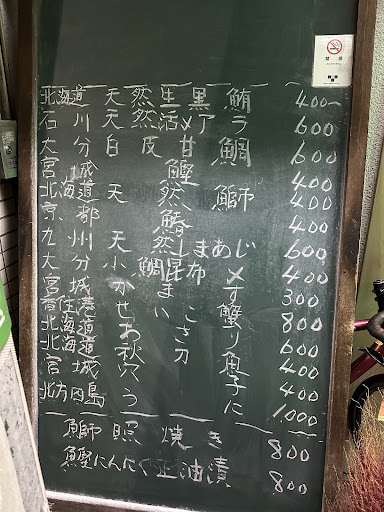 禁煙
北海道 天然生黒鮪 400
石川 天然活〆アラ 600
大分 白皮甘鯛 600
宮城 鰹 400
北海道 天然鰤 400
京都 鰆 400
九州 天然しまあじ 600
大分 小鯛昆布〆 400
宮城 かます 300
香住港 せいこ蟹 800
北海道 あさり 600
北海道 秋刀魚 400
宮城 穴子 400
北方四島 うに 1,000
鰤照焼き 800
鰹にんにく正油漬 800